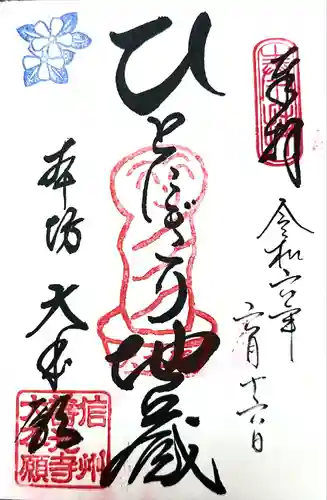 奉拝
令和六年
六月十六日
ひとにぎり地蔵
本坊 大勧進
信州
善光寺
大本願